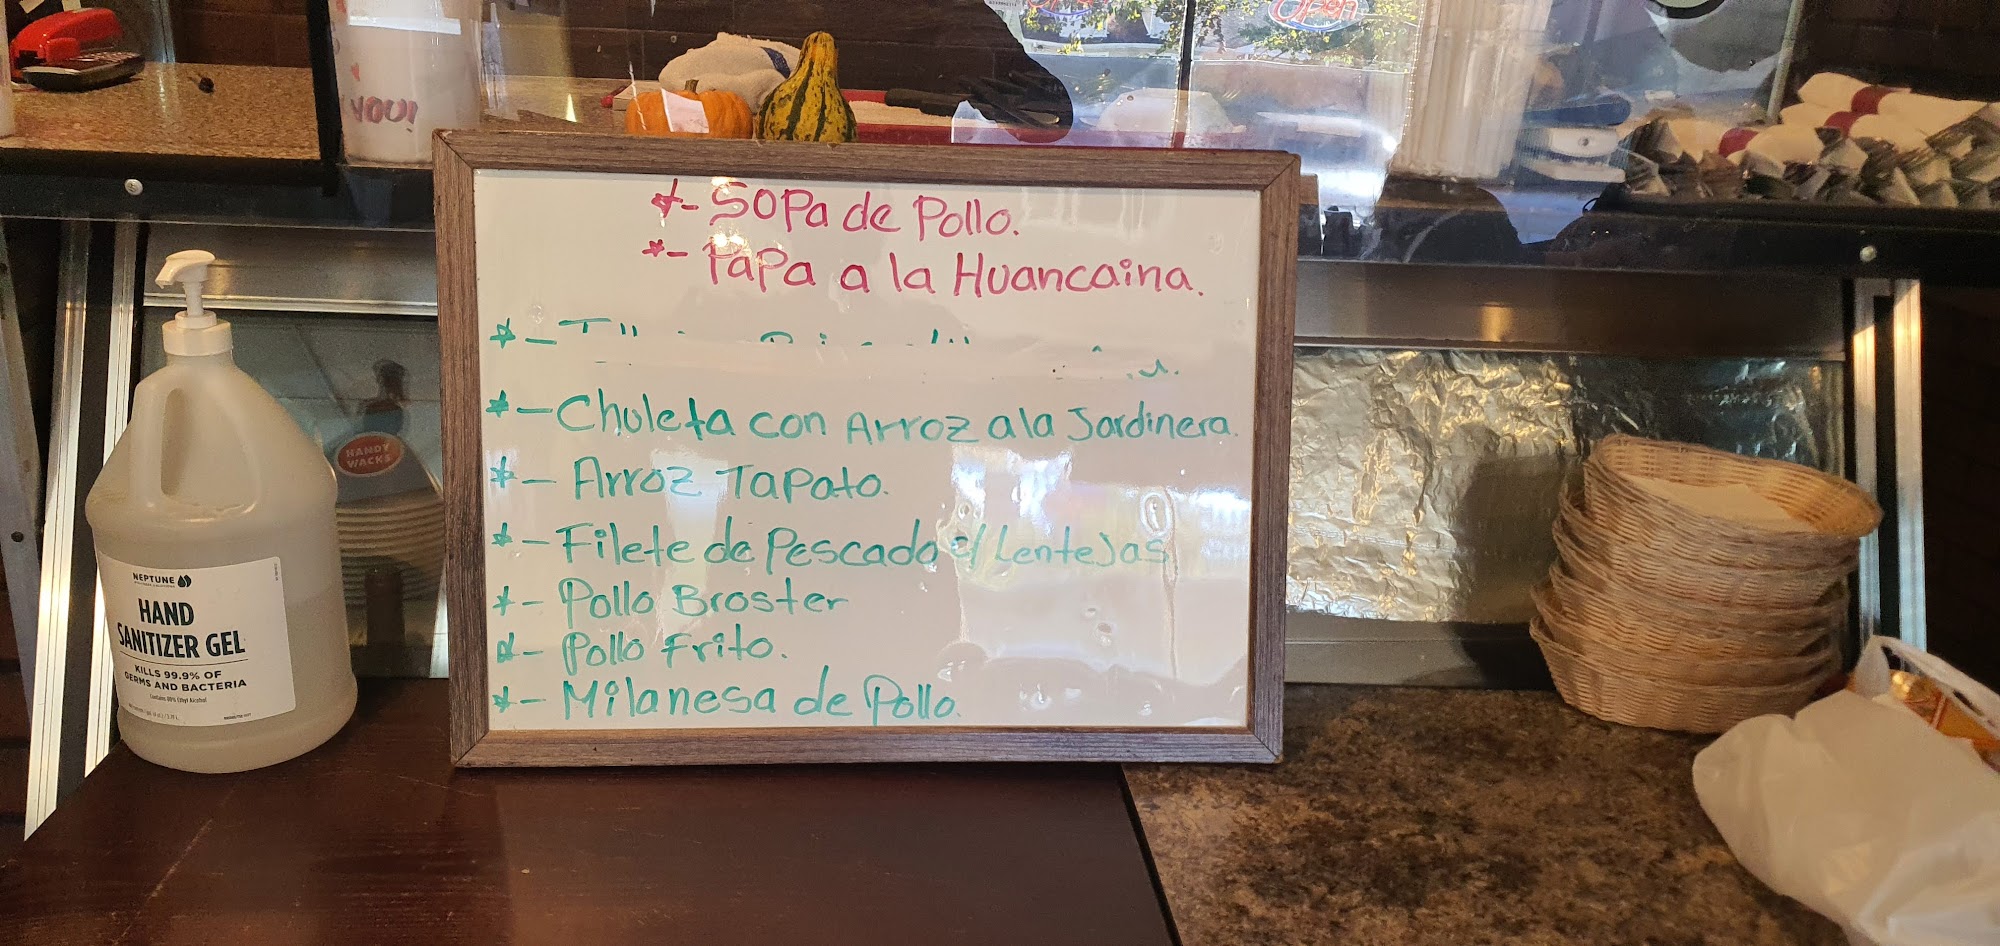 Open
YOU!
*- Sopa de Pollo.
*- Papa a la Huancaina.
*- Chuleta con Arroz a la Jardinera.
*- Arroz Tapato.
*- Filete de Pescado c/ Lentejas
*- Pollo Broster
*- Pollo Frito.
*- Milanesa de Pollo.
HANDY
WACKS
NEPTUNE
HAND
SANITIZER GEL
KILLS 99.9% OF
GERMS AND BACTERIA
Contains 80% Ethyl Alcohol